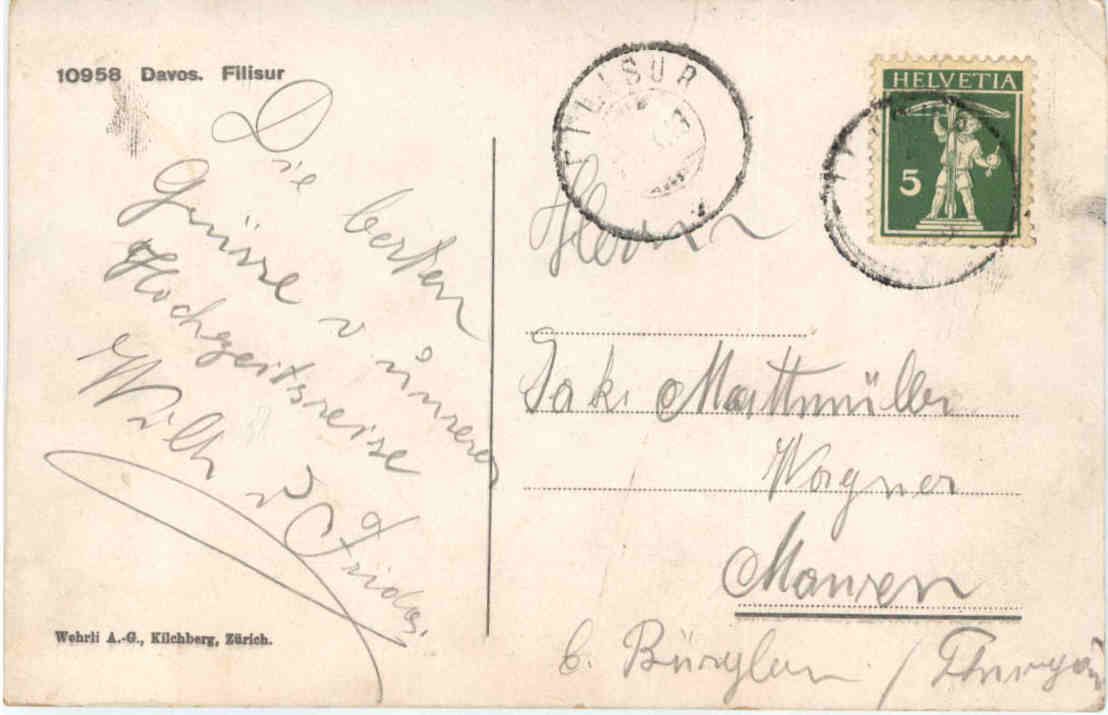 10958 Davos. Filisur
Die besten
Grüsse v unserer
Hochzeitsreise
Willy u Frida.
Wehrli A.-G., Kilchberg, Zürich.
FILISUR
HELVETIA
5
Herrn
Jak. Mattmüller
Wagner
Mausen
b. Bürglen / Thurgau